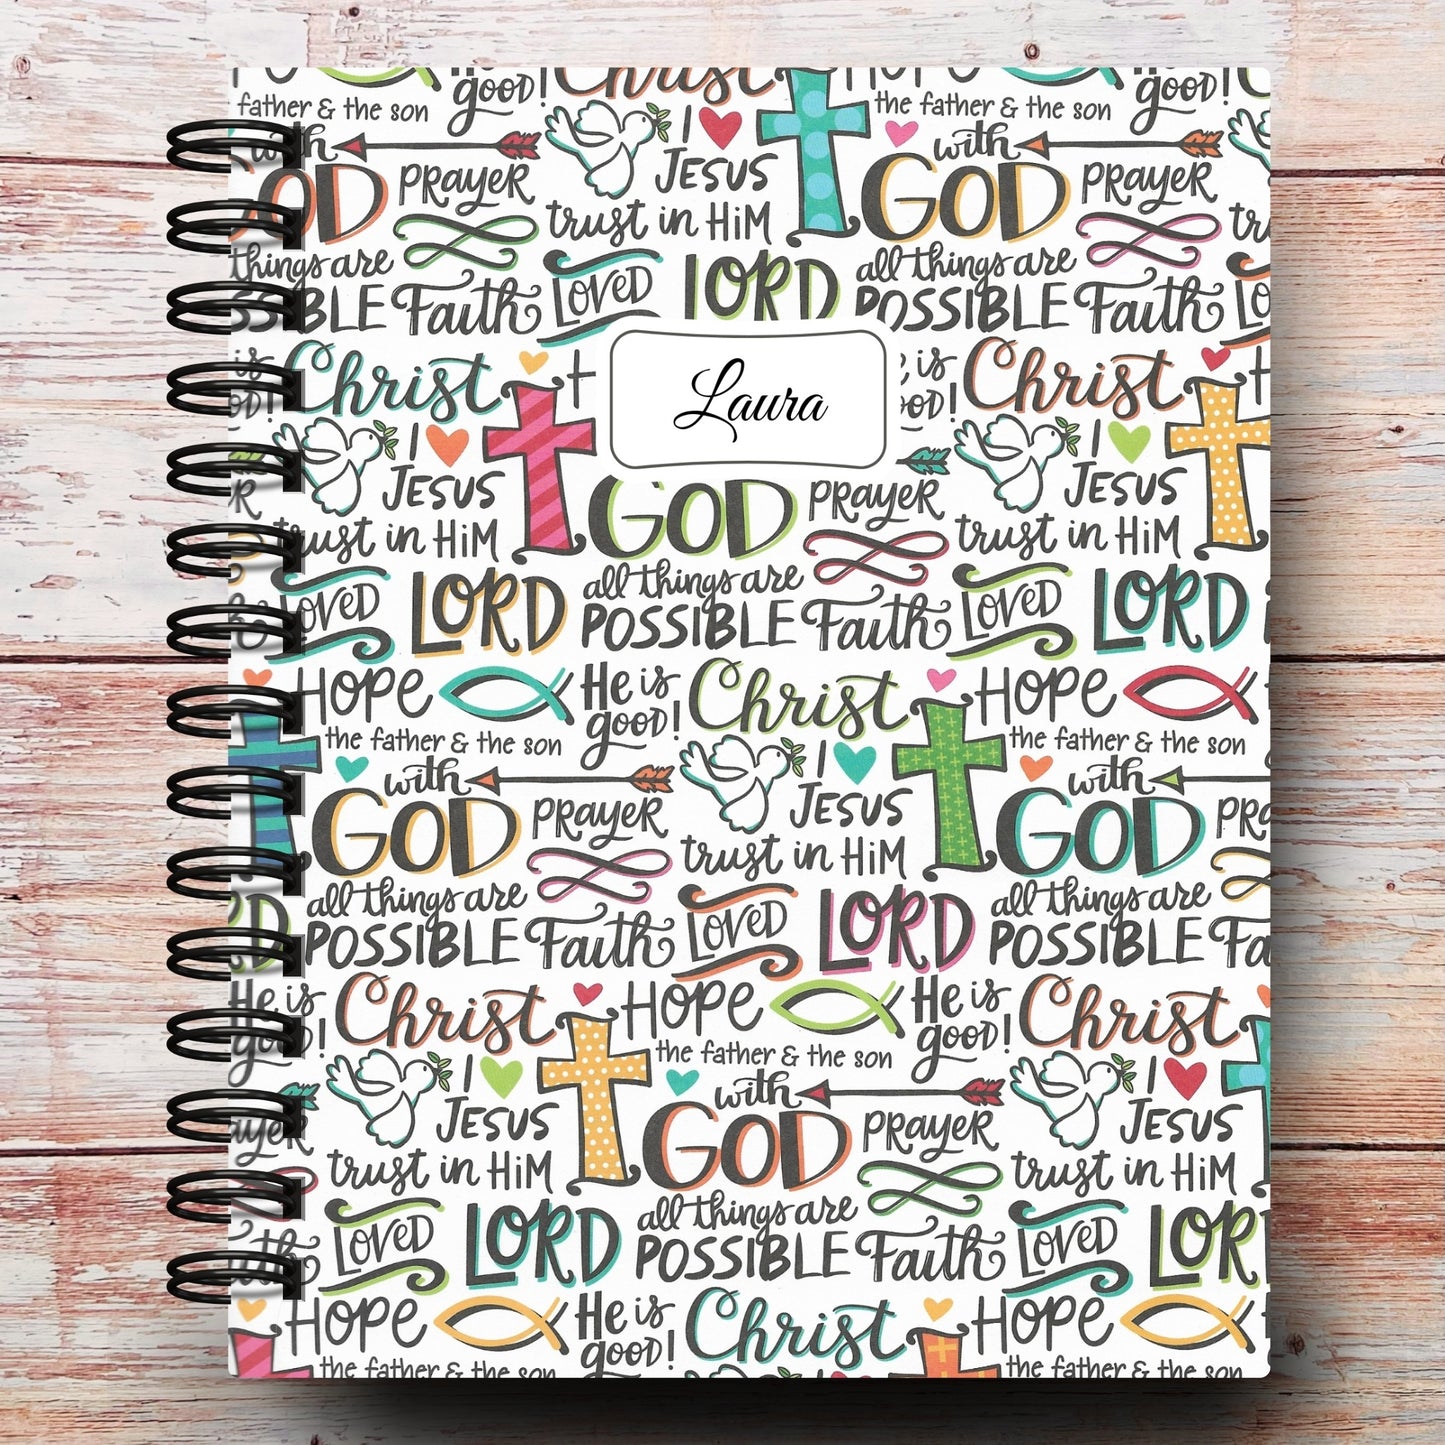 He is good! Christ Hope
father & the son the father & the son
with I with
GOD PRAYER JESUS GOD PRAYER
trust in HiM
things are LOVED LORD all things are
POSSIBLE Faith POSSIBLE Faith
Laura
Christ is Christ
I I
JESUS JESUS
GOD PRAYER
trust in HiM trust in HiM
LOVED LORD all things are LOVED LORD
POSSIBLE Faith
HOPE He is good! Christ HOPE
the father & the son the father & the son
with I with
GOD PRAYER JESUS GOD
trust in HiM
all things are LOVED LORD all things are
POSSIBLE Faith POSSIBLE
He is good! Christ HOPE He is good! Christ
the father & the son
I with I
JESUS GOD PRAYER JESUS
trust in HiM trust in HiM
LOVED LORD all things are LOVED LORD
POSSIBLE Faith
HOPE He is good! Christ HOPE He is good!
the father & the son the father & the son